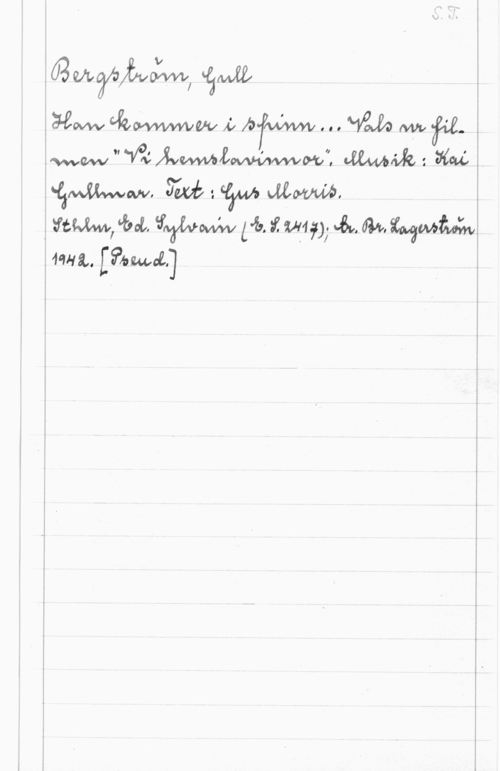 S. T.
Bergström, Gull
Han kommer i spinn... Vals ur fil-
men "Vi hemslavinnor". Musik: Kai
Gullmar. Text: Gus Morris.
Sthlm, Ed. Sylvain (E. S. 2417); tr. Br. Lagerström
1942. [Pseud.]